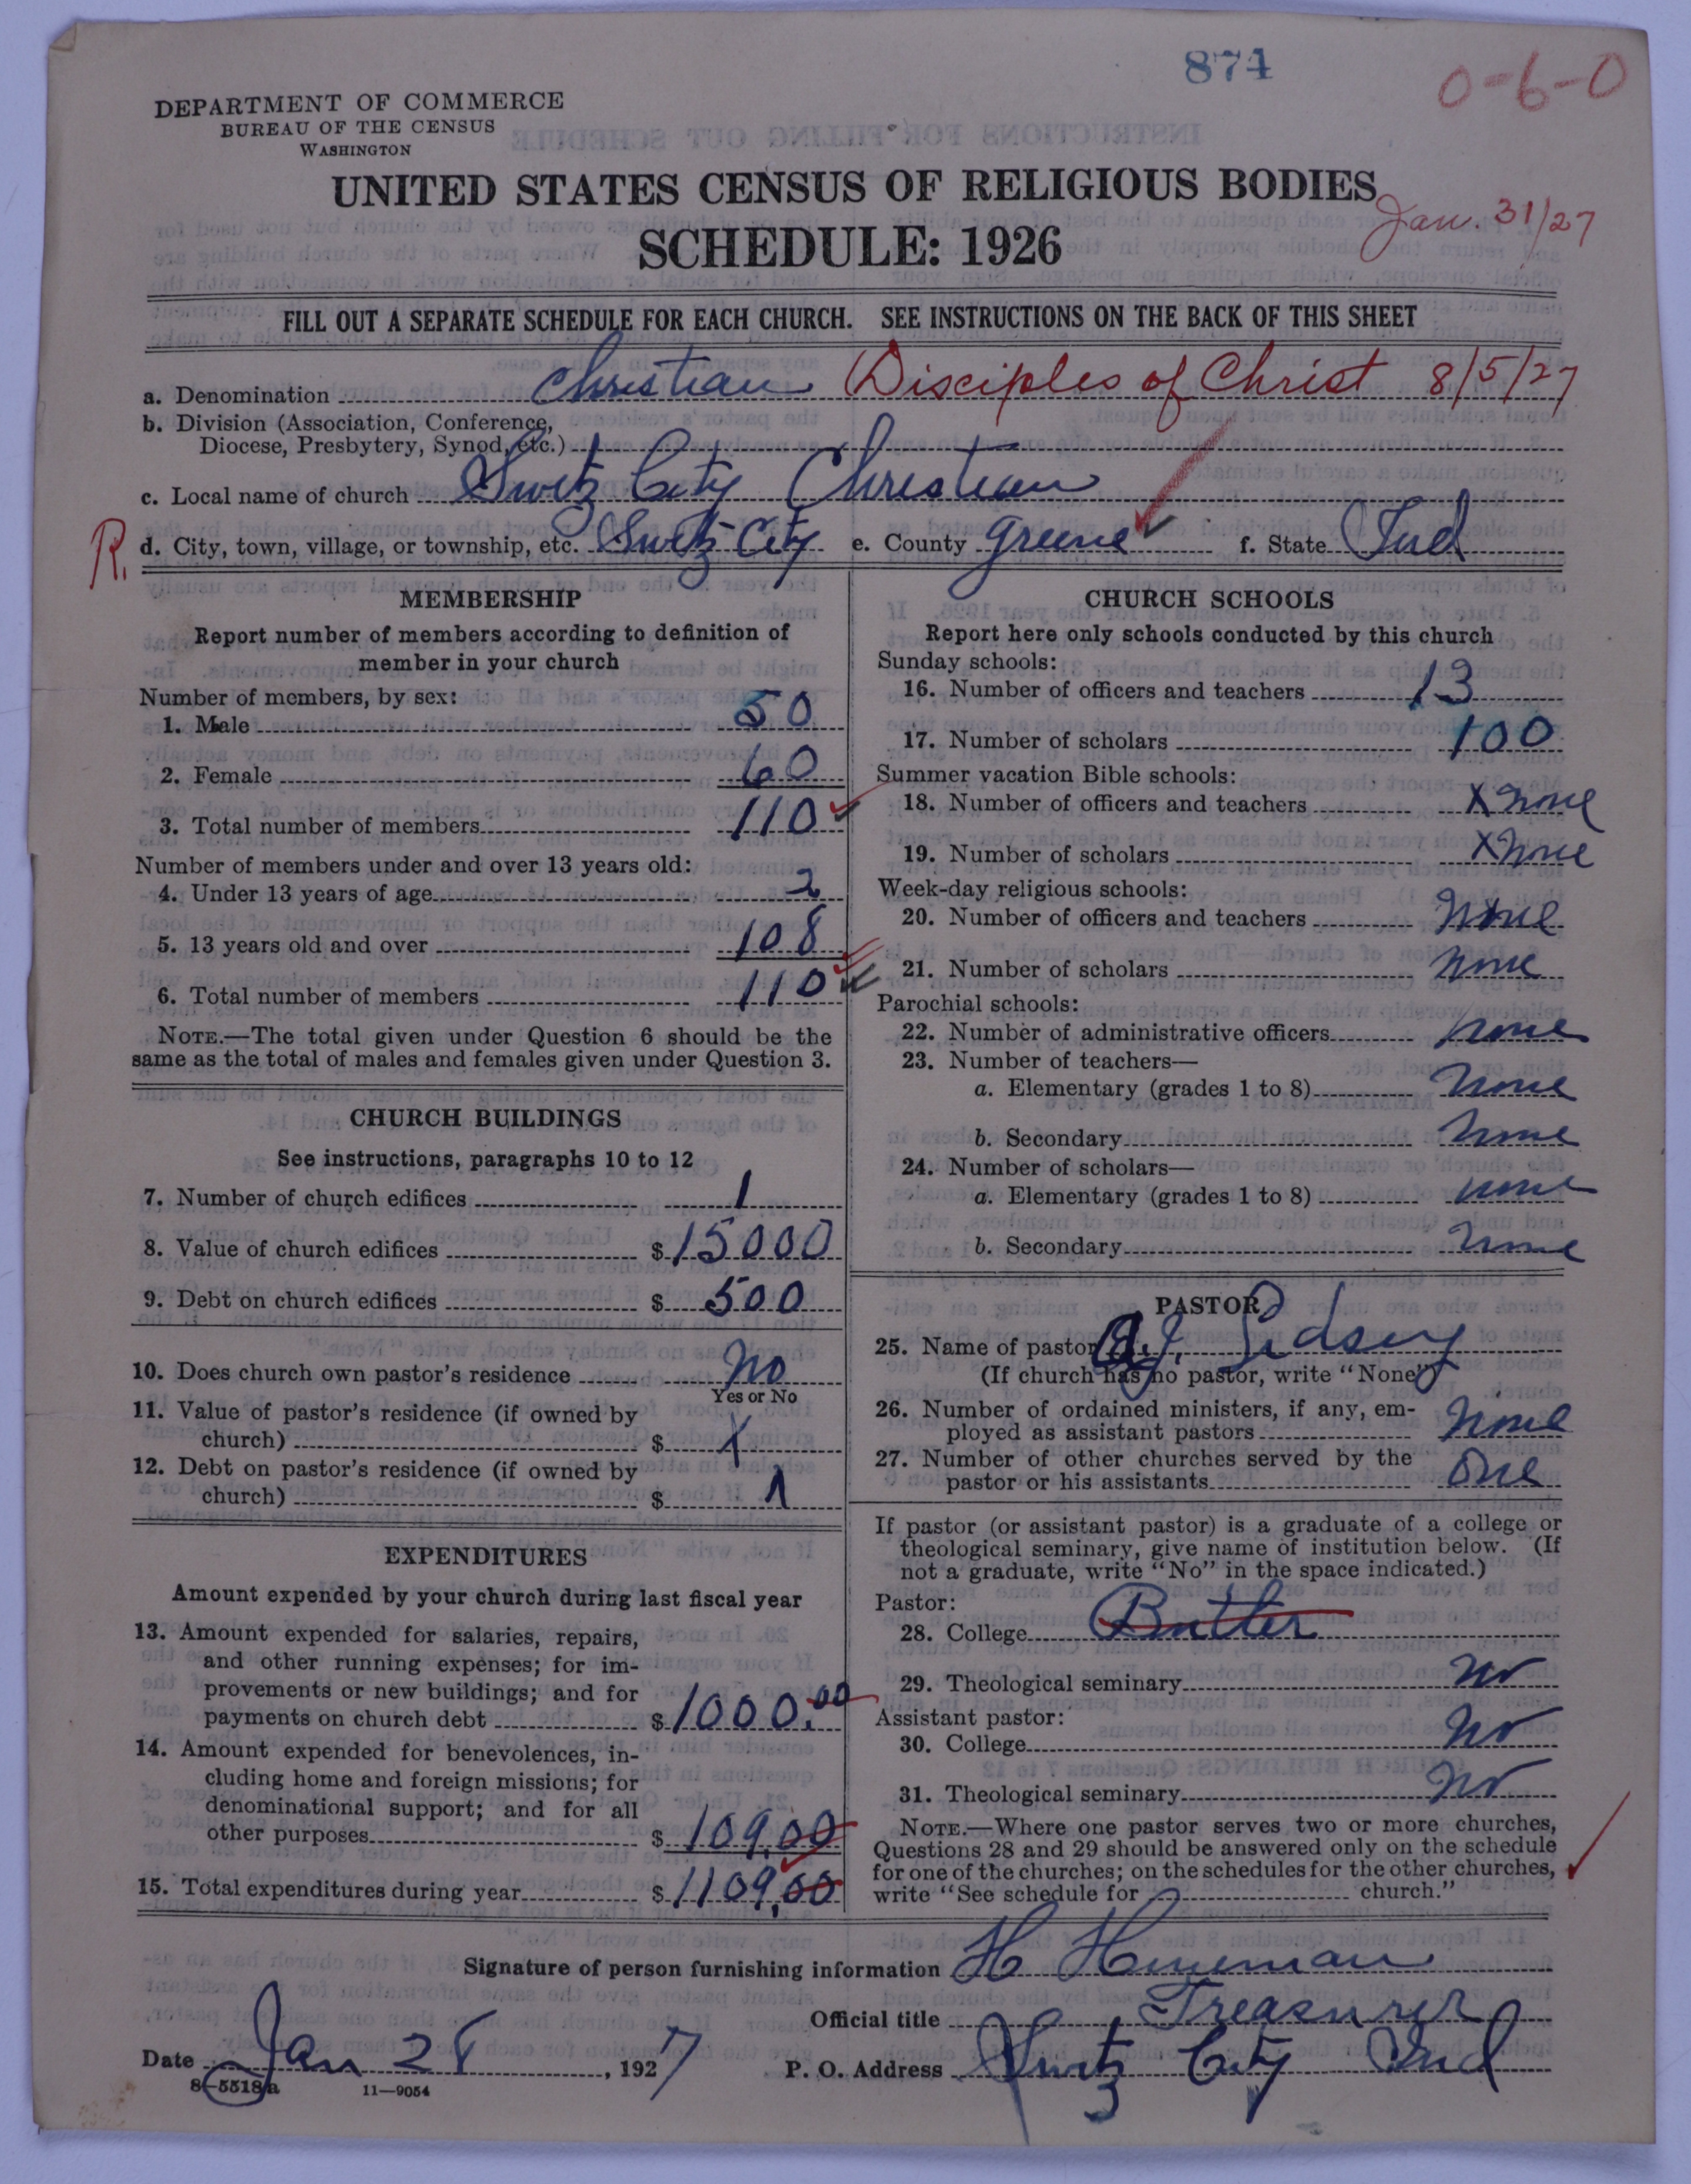 874
0-6-0
DEPARTMENT OF COMMERCE
BUREAU OF THE CENSUS
WASHINGTON
UNITED STATES CENSUS OF RELIGIOUS BODIES
Jan. 31/27
SCHEDULE: 1926
FILL OUT A SEPARATE SCHEDULE FOR EACH CHURCH. SEE INSTRUCTIONS ON THE BACK OF THIS SHEET
a. Denomination Christian (Disciples of Christ 8/5/27
b. Division (Association, Conference,
Diocese, Presbytery, Synod, etc.)
c. Local name of church Switz City Christian
R. d. City, town, village, or township, etc. Switz City e. County Greene f. State Ind
MEMBERSHIP
Report number of members according to definition of
member in your church
Number of members, by sex:
1. Male 50
2. Female 60
3. Total number of members 110
Number of members under and over 13 years old:
4. Under 13 years of age 2
5. 13 years old and over 108
6. Total number of members 110
NOTE.—The total given under Question 6 should be the
same as the total of males and females given under Question 3.
CHURCH BUILDINGS
See instructions, paragraphs 10 to 12
7. Number of church edifices 1
8. Value of church edifices $ 15000
9. Debt on church edifices $ 500
10. Does church own pastor's residence No
Yes or No
11. Value of pastor's residence (if owned by
church) $ X
12. Debt on pastor's residence (if owned by
church) $
EXPENDITURES
Amount expended by your church during last fiscal year
13. Amount expended for salaries, repairs,
and other running expenses; for im-
provements or new buildings; and for
payments on church debt $ 1000.00
14. Amount expended for benevolences, in-
cluding home and foreign missions; for
denominational support; and for all
other purposes $ 109.00
15. Total expenditures during year $ 1109.00
CHURCH SCHOOLS
Report here only schools conducted by this church
Sunday schools:
16. Number of officers and teachers 13
17. Number of scholars 100
Summer vacation Bible schools:
18. Number of officers and teachers X none
19. Number of scholars X none
Week-day religious schools:
20. Number of officers and teachers none
21. Number of scholars none
Parochial schools:
22. Number of administrative officers none
23. Number of teachers—
a. Elementary (grades 1 to 8) none
b. Secondary none
24. Number of scholars—
a. Elementary (grades 1 to 8) none
b. Secondary none
PASTOR
25. Name of pastor J. Lidsey
(If church has no pastor, write "None")
26. Number of ordained ministers, if any, em-
ployed as assistant pastors none
27. Number of other churches served by the
pastor or his assistants One
If pastor (or assistant pastor) is a graduate of a college or
theological seminary, give name of institution below. (If
not a graduate, write "No" in the space indicated.)
Pastor:
28. College Butler
29. Theological seminary No
Assistant pastor:
30. College No
31. Theological seminary No
NOTE.—Where one pastor serves two or more churches,
Questions 28 and 29 should be answered only on the schedule
for one of the churches; on the schedules for the other churches,
write "See schedule for church."
Signature of person furnishing information H Heineman
Official title Treasurer
Date Jan 28, 1927 P. O. Address Switz City Ind
8—5518a 11—9054